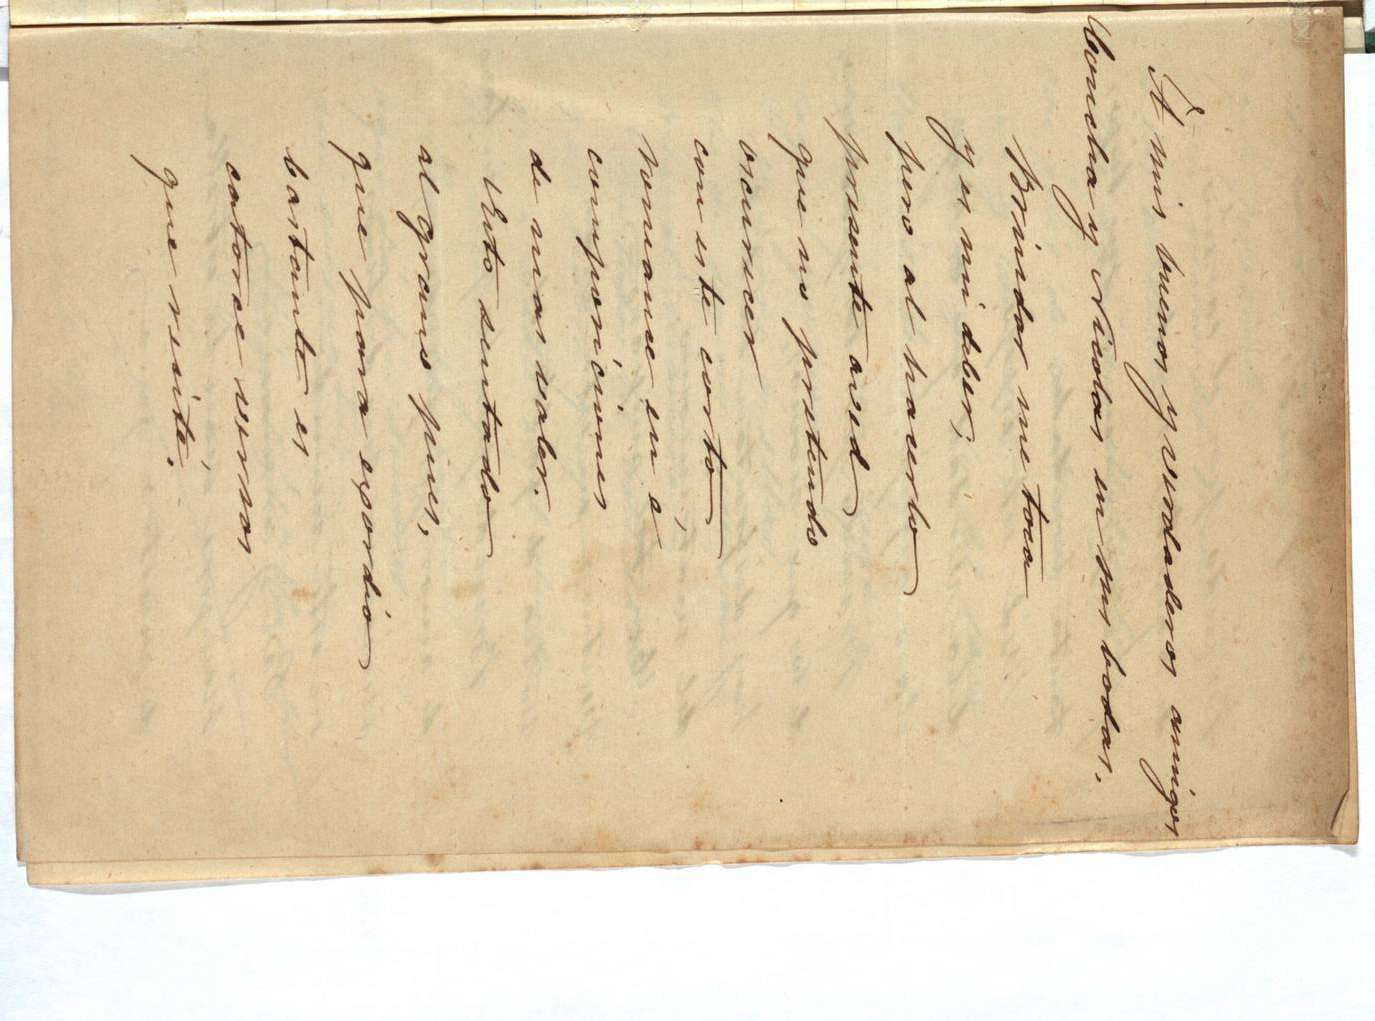 A mis buenos y verdaderos amigos
Concha y Nicolas en sus bodas.
Brindar me toca
y es mi deber;
pero al hacerlo
presente aved
que no pretendo
oscurecer
con este corto,
romance en é
composiciones
de mas valer.
Esto sentado
al grano pues,
que para exordio
bastante es
catorce versos
que resité.